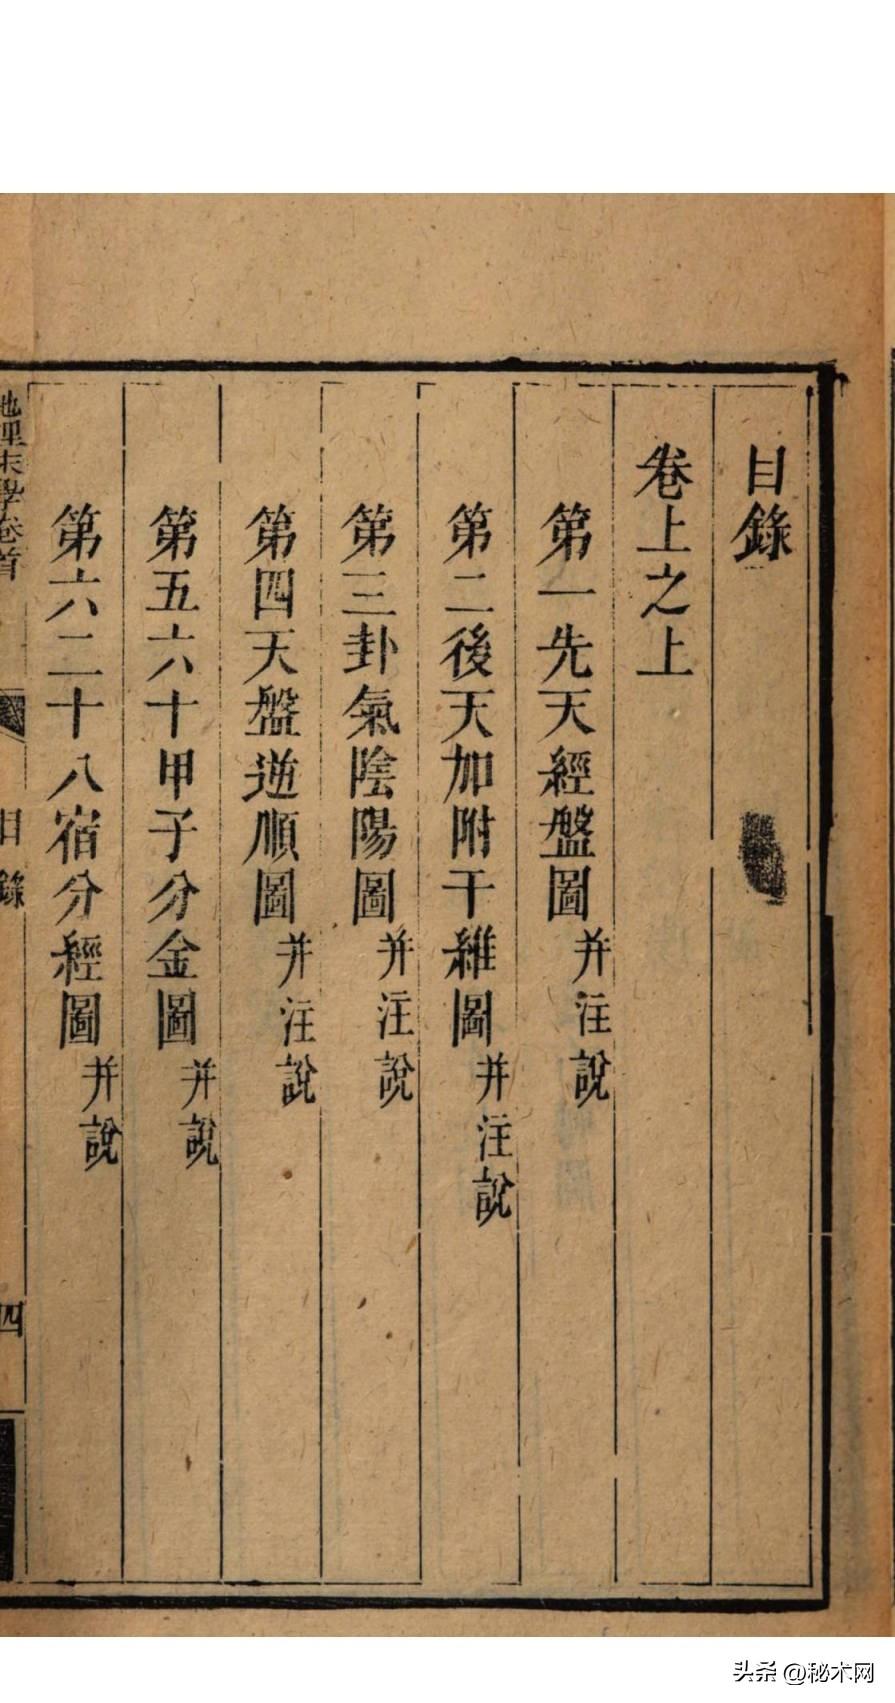 目錄
卷上之上
第一先天經盤圖并注說
第二後天加附干維圖并注說
第三卦氣陰陽圖并注說
第四天盤逆順圖并注說
第五六十甲子分金圖并說
第六二十八宿分經圖并說
地理末學卷首
目錄
四
头条 @秘术网